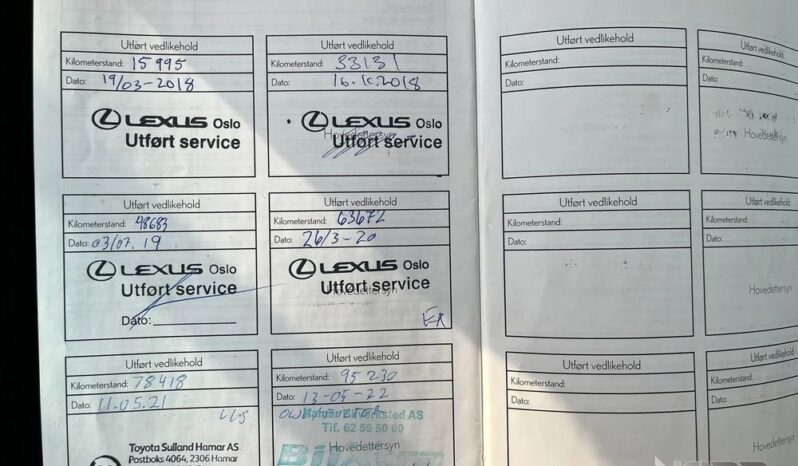 Utført vedlikehold
Kilometerstand: 15995
Dato: 19/03-2018
LEXUS Oslo
Utført service
Utført vedlikehold
Kilometerstand: 33131
Dato: 16.10.2018
LEXUS Oslo
Hovedettersyn
Utført service
Utført vedlikehold
Kilometerstand: 48683
Dato: 03/07.19
LEXUS Oslo
Utført service
Dato:
Utført vedlikehold
Kilometerstand: 63672
Dato: 26/3-20
LEXUS Oslo
Utført service
Hovedettersyn
Utført vedlikehold
Kilometerstand: 78418
Dato: 11.05.21
Toyota Sulland Hamar AS
Postboks 4064, 2306 Hamar
Utført vedlikehold
Kilometerstand: 95230
Dato: 13-05-22
AS
Tlf. 62 59 50 00
Hovedettersyn
Utført vedlikehold
Kilometerstand:
Dato:
Utført vedlikehold
Kilometerstand:
Dato:
Hovedettersyn
Utført vedlikehold
Kilometerstand:
Dato:
Utført vedlikehold
Kilometerstand:
Dato:
Hovedettersyn
Utført vedlikehold
Kilometerstand:
Dato:
Utført vedlikehold
Kilometerstand:
Dato: